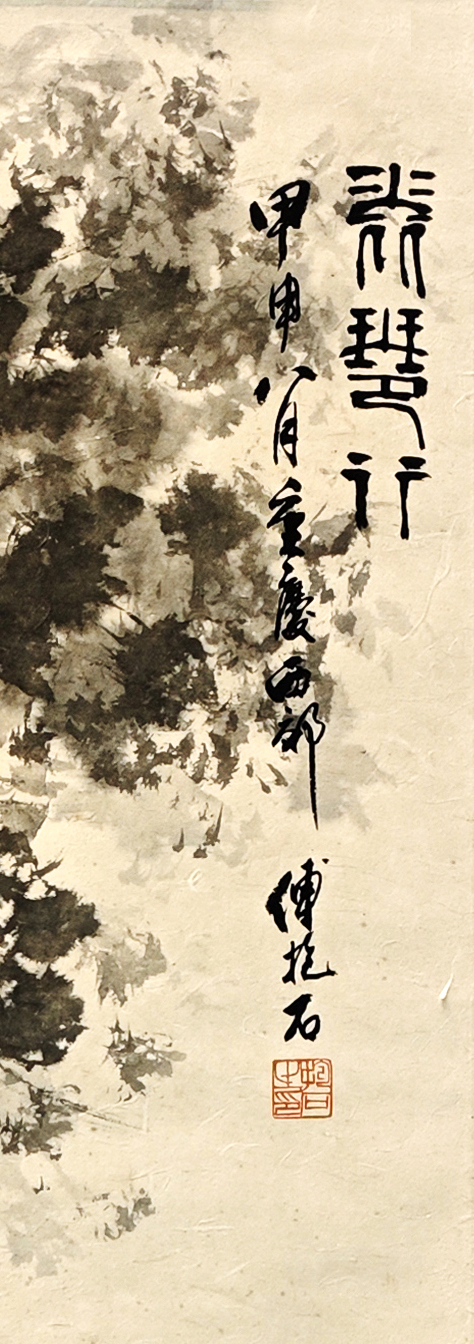 琵琶行
甲申八月重慶西郊 傅抱石